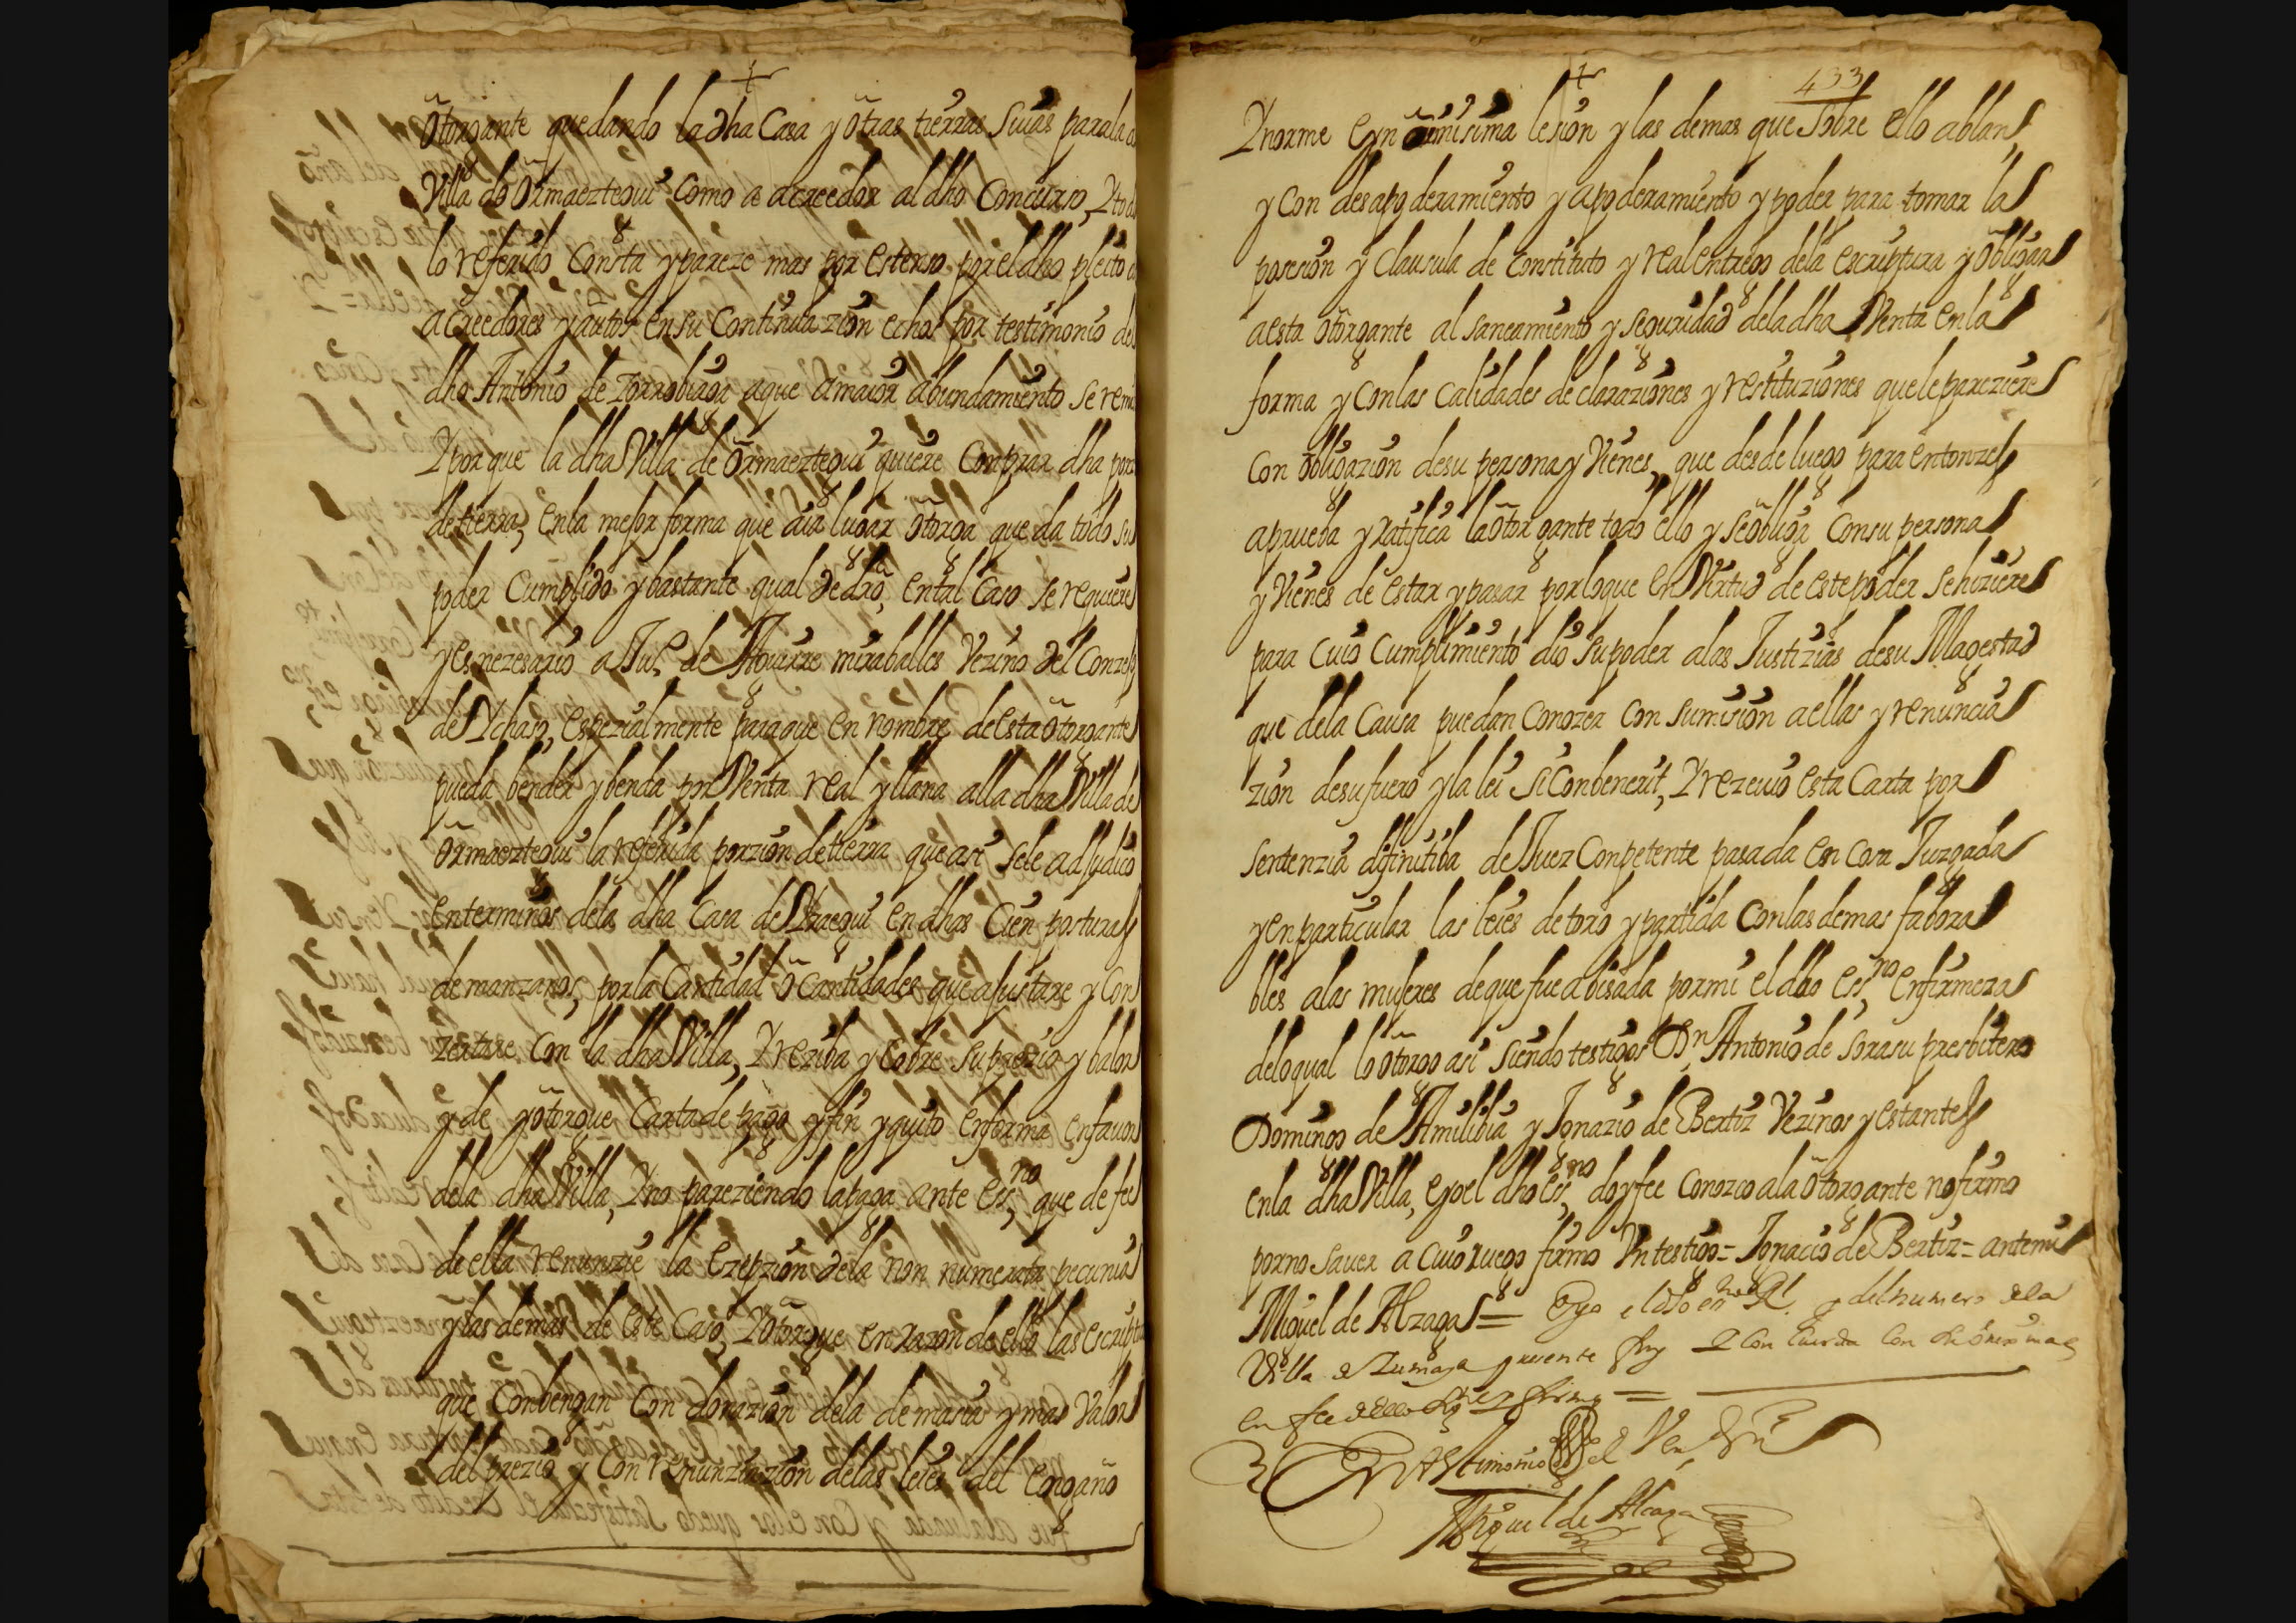 +
otorgante quedando la dha Casa y otras tierras suias para la
Villa de Ormaeztegui Como a acreedor al dho Concurso, Y todo
lo referido Consta y pareze mas por estenso por el dho pleito
acreedores y autos en su Continuazion echos por testimonio del
dho Antonio de Torrobiaga a que a maior abundamiento se remi
Y porque la dha Villa de Ormaeztegui quiere Conprar dha porz
de tierra, en la mejor forma que aia lugar otorga que da todo su
poder Cumplido y bastante qual de dro, en tal Caso se requiere
y es nezesario a Jul. de Aguirre miraballes Vezino del Conzejo
de Ychaso, espezialmente para que en nombre de esta otorgante
pueda bender y benda por Venta real y llana alla dha Villa de
Ormaeztegui la referida porzion de tierra que asi se le adjudico
en terminos dela dha Casa de Yraegui en dhas Cien posturas
de manzanos, por la Cantidad o Cantidades que ajustare y Con
zertare Con la dha Villa, Y reziba y Cobre su prezio y balor
y de y otorgue Carta de pago y fin y quito en forma en fauor
dela dha Villa, Y no pareziendo la paga ante ess.no que de fee
de ella renunzie la ezepzion dela non numerata pecunia
y las demas de este Caso, Y otorgue en razon de ello las escriptu
que Conbengan Con donazion dela demasia y mas Valor
del prezio y Con renunziazion delas leies del engaño
+
433
Ynorme e ynormisima lesion y las demas que sobre ello ablan,
y Con desapoderamiento y apoderamiento y poder para tomar la
posesion y Clausula de Constituto y real entrego dela escriptura y obligar
a esta otorgante al saneamiento y seguridad dela dha Venta en la
forma y Con las Calidades declaraziones y restituziones que le pareziere
Con obligazion de su persona y Vienes, que desde luego para entonzes
aprueba y ratifica la otorgante todo ello y se obliga Con su persona
y Vienes de estar y pasar por lo que en Virtud de este poder se hiziere
para Cuio Cumplimiento dio su poder a las Justizias de su Magestad
que dela Causa puedan Conozer Con sumision a ellas y renuncia
zion de su fuero y la lei si Conbenerit, Y rezeuio esta Carta por
sentenzia difinitiba de Juez Conpetente pasada en Cosa Juzgada
y en particular las leies de toro y partida Con las demas fabora
bles a las mujeres de que fue abisada por mi el dho ess.no en firmeza
delo qual lo otorgo asi siendo testigos Dn Antonio de Sorasu presbitero
Domingo de Amilibia y Ignazio de Bertiz Vezinos y estantes
en la dha Villa, e yo el dho ess.no doy fee Conozco a la otorgante no firmo
por no sauer a Cuio ruego firmo Un testigo = Ignacio de Bertiz = ante mi
Miguel de Alzaga = E yo el dho ess.no Rl. y del numero dela
Villa de Zumaya presente fuy Y Concuerda Con el original
en fee de ello signe y firme =
En testimonio de Verdad
Miguel de Alzaga